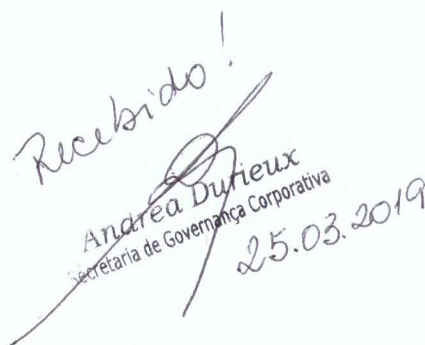 Recebido!
Andréa Durieux
Secretaria de Governança Corporativa
25.03.2019